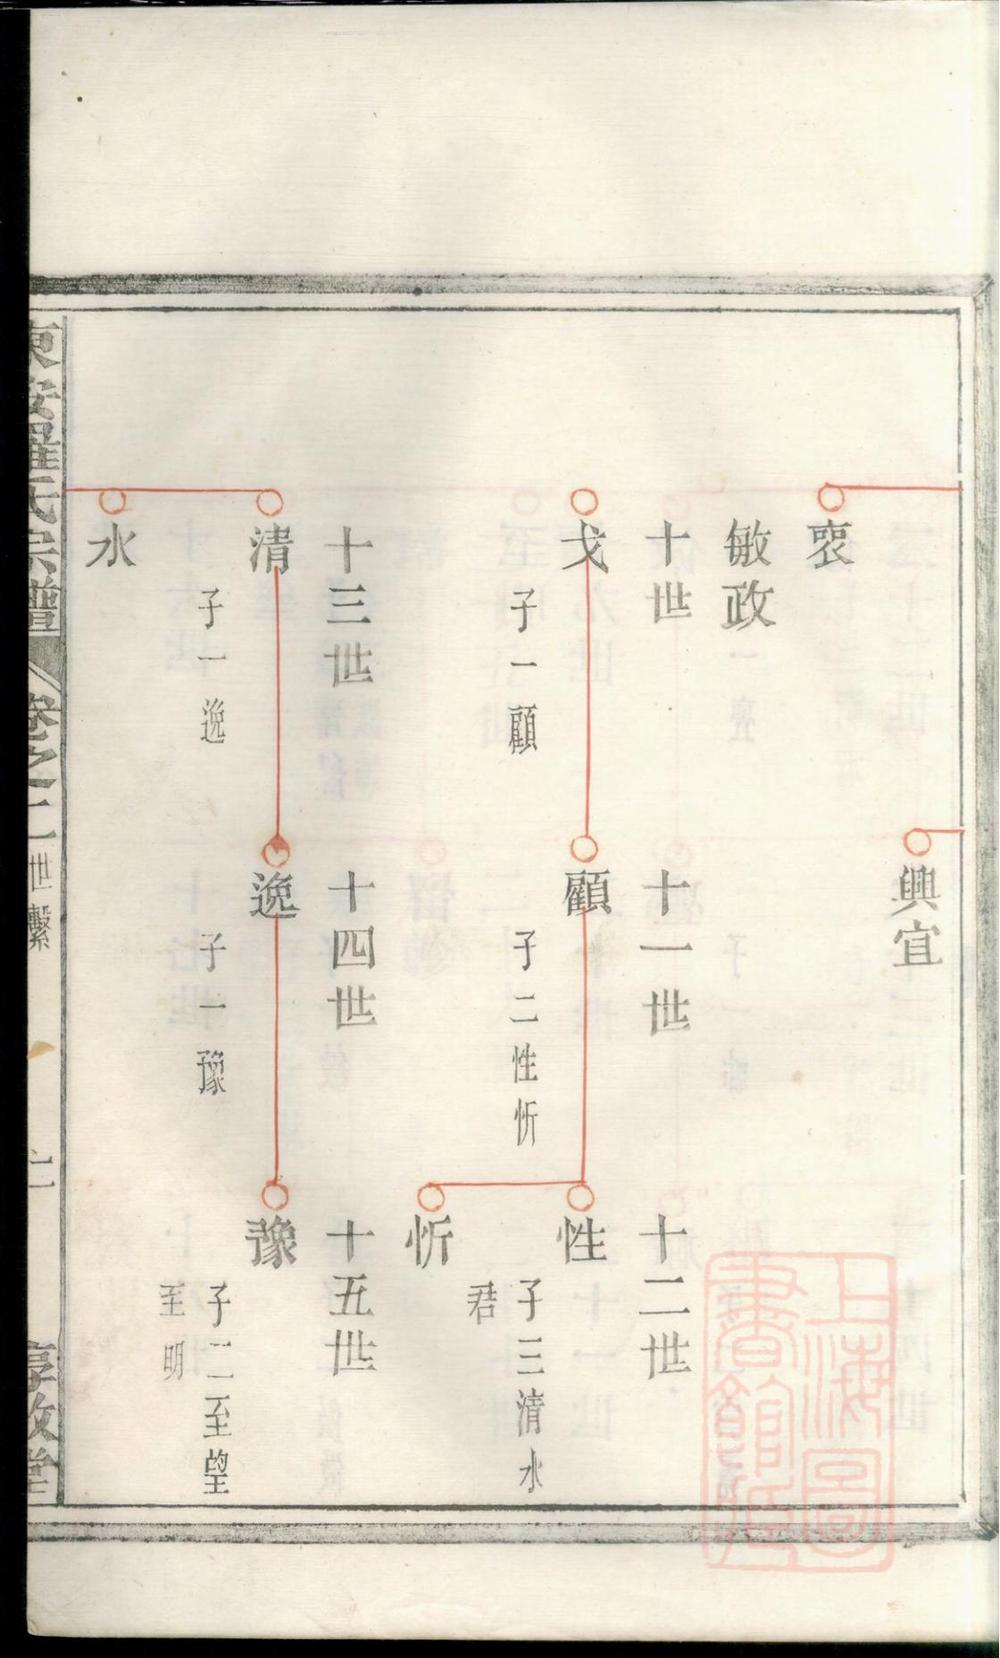 裒
興宜
敏政
十世
十一世
十二世
戈
子一顧
顧
子二性忻
性
子三清水
君
忻
十三世
十四世
十五世
清
子一逸
逸
子一豫
豫
子二至望
至明
水
東安羅氏宗譜
卷之二
世繫
敦堂
上海圖
書館藏